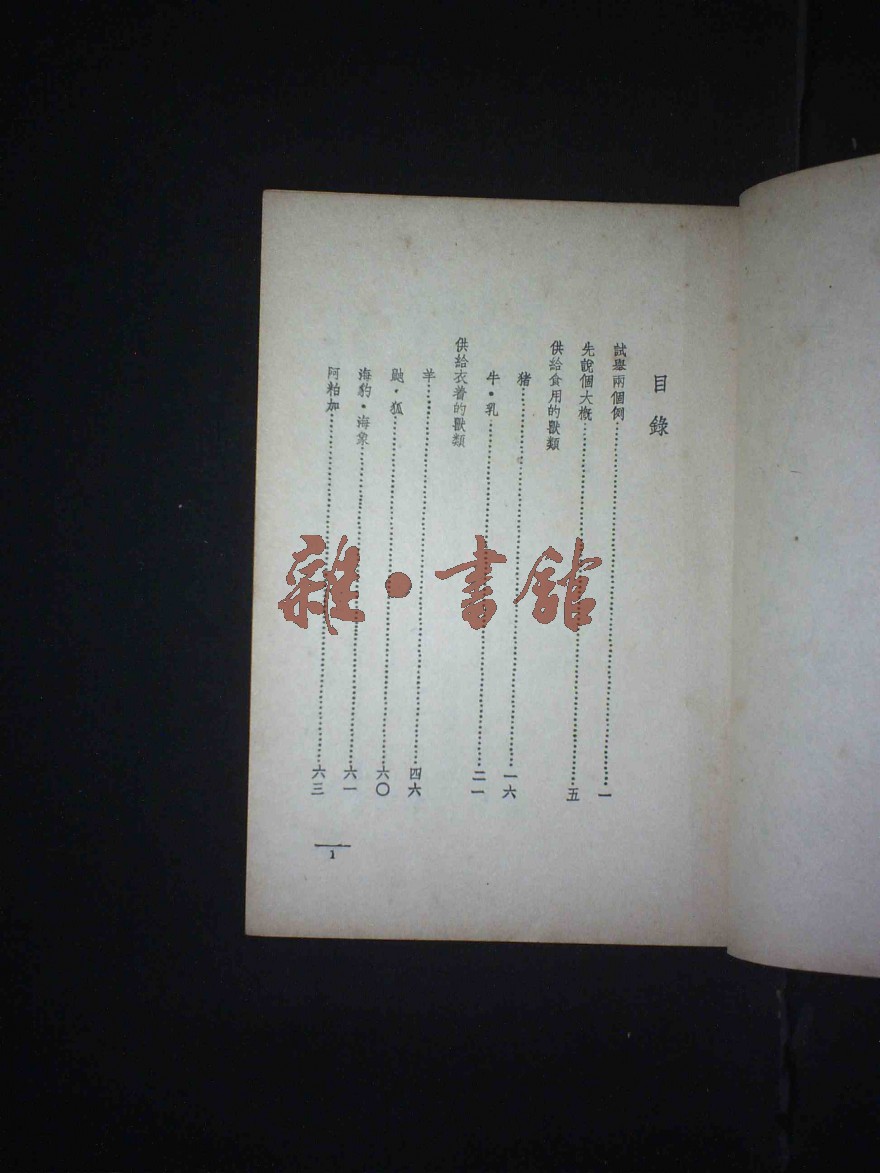 目錄
試舉兩個例……一
先說個大概……五
供給食用的獸類
猪……一六
牛·乳……二一
供給衣着的獸類
羊……四六
鼬·狐……六〇
海豹·海象……六一
阿粕加……六三
1
雜·書館